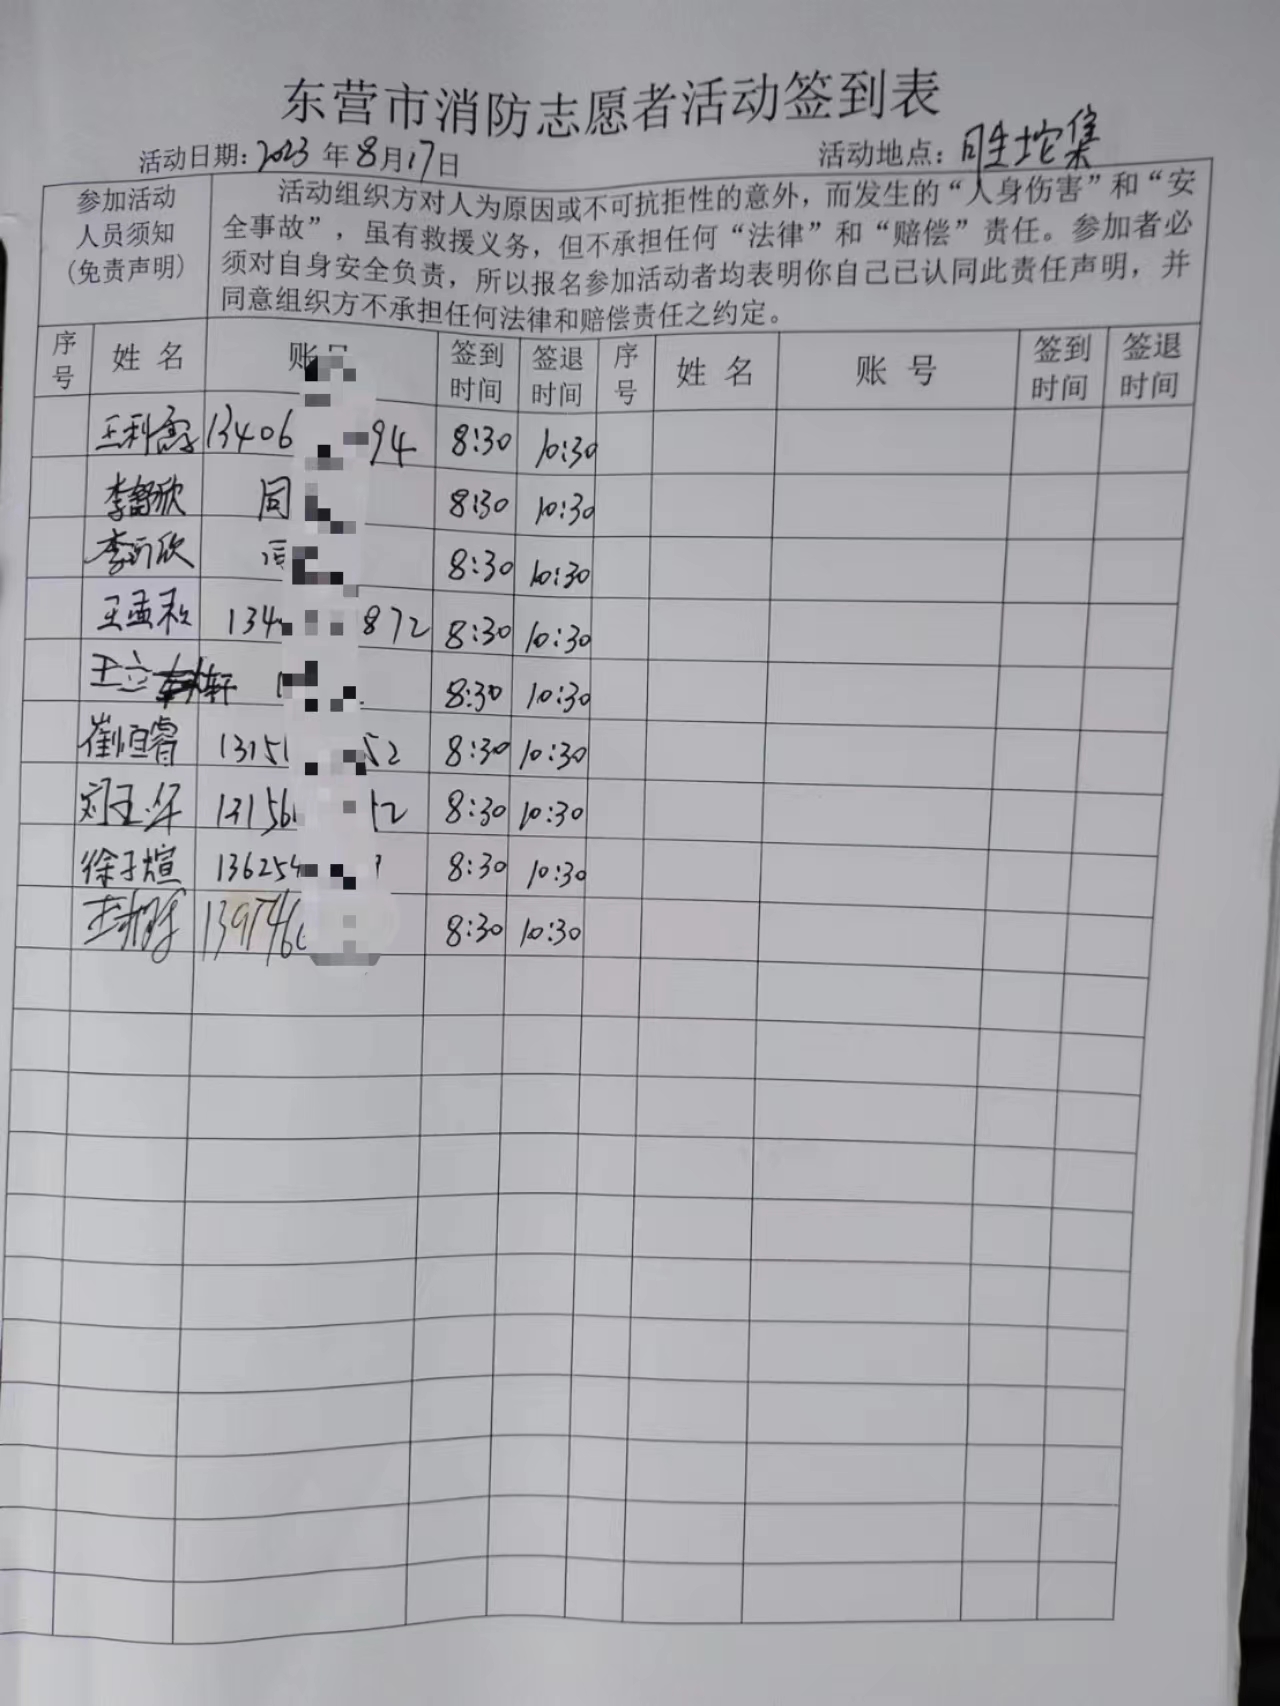 东营市消防志愿者活动签到表
活动日期：2023年8月17日 活动地点：胜坨集
参加活动人员须知（免责声明）
活动组织方对人为原因或不可抗拒性的意外，而发生的“人身伤害”和“安
全事故”，虽有救援义务，但不承担任何“法律”和“赔偿”责任。参加者必
须对自身安全负责，所以报名参加活动者均表明你自己已认同此责任声明，并
同意组织方不承担任何法律和赔偿责任之约定。
序号 姓名 账号 签到时间 签退时间 序号 姓名 账号 签到时间 签退时间
王利 13406 94 8:30 10:30
李舒欣 同 8:30 10:30
李沂欣 8:30 10:30
王孟 134 872 8:30 10:30
王立轩 8:30 10:30
崔恒睿 13151 52 8:30 10:30
刘玉华 13156 52 8:30 10:30
徐子煊 136254 8:30 10:30
139546 8:30 10:30